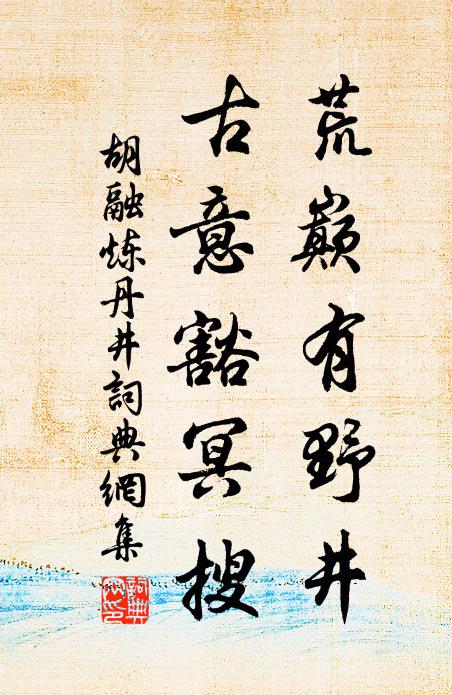 荒巔有野井
古意豁冥搜
胡融炼丹井詞典網集